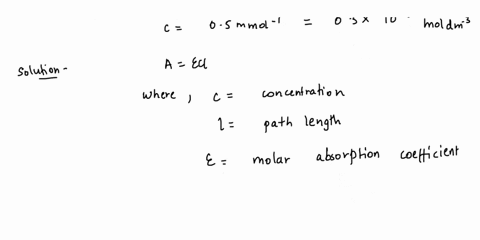 C = 0.5 mmol⁻¹ = 0.5 × 10 mol dm⁻³
Solution -
A = ECl
where, C = concentration
l = path length
ε = molar absorption coefficient